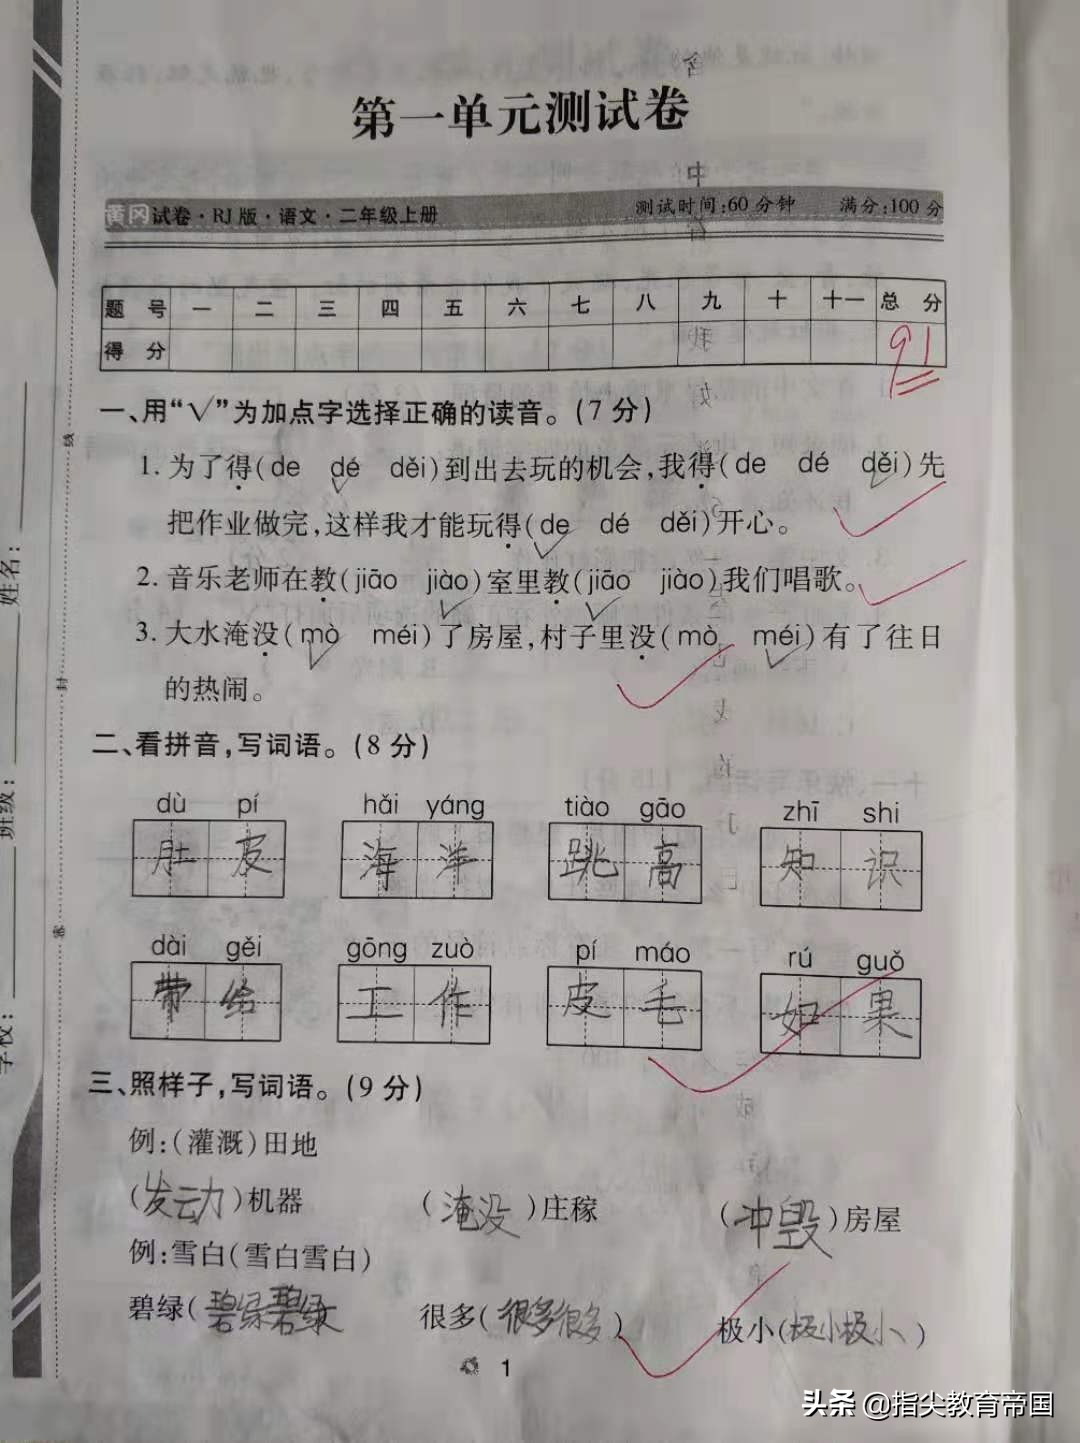 第一单元测试卷
黄冈试卷·RJ版·语文·二年级上册 测试时间:60分钟 满分:100分
题号 一 二 三 四 五 六 七 八 九 十 十一 总分
得分 91
一、用“√”为加点字选择正确的读音。(7分)
1. 为了得(de dé děi)到出去玩的机会,我得(de dé děi)先
把作业做完,这样我才能玩得(de dé děi)开心。
2. 音乐老师在教(jiāo jiào)室里教(jiāo jiào)我们唱歌。
3. 大水淹没(mò méi)了房屋,村子里没(mò méi)有了往日
的热闹。
二、看拼音,写词语。(8分)
dù pí hǎi yáng tiào gāo zhī shi
肚皮 海洋 跳高 知识
dài gěi gōng zuò pí máo rú guǒ
带给 工作 皮毛 如果
三、照样子,写词语。(9分)
例:(灌溉)田地
(发动)机器 (淹没)庄稼 (冲毁)房屋
例:雪白(雪白雪白)
碧绿(碧绿碧绿 很多(很多很多) 极小(极小极小)
1
学校: 班级: 姓名:
密 封 线
头条 @指尖教育帝国